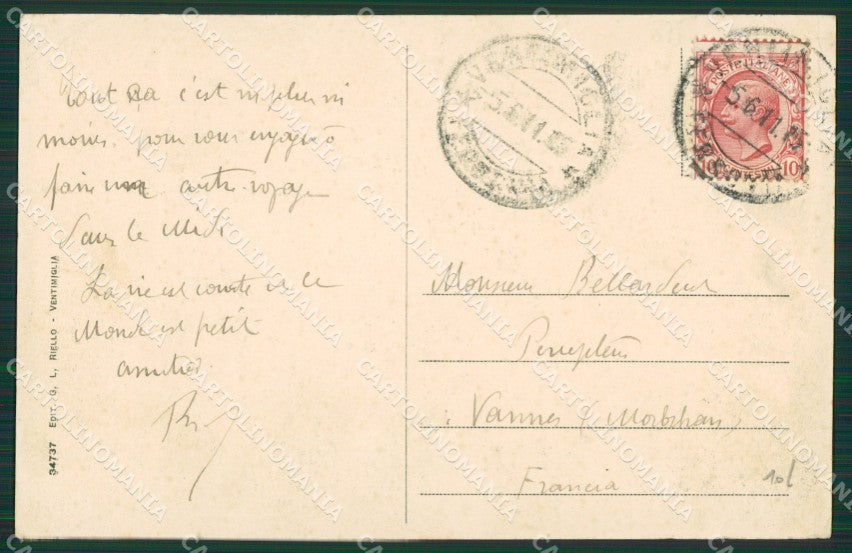 Tout ça c'est ni plus ni
moins pour vous engager à
faire un autre voyage
dans le Midi
La vie est courte et le
Monde est petit
amitiés
34737 EDIT. G. L. RIELLO - VENTIMIGLIA
VENTIMIGLIA
5.6.11.
POSTE ITALIANE
10
10
VENTIMIGLIA
5.6.11.
Monsieur
Percepteur
Vannes (Morbihan)
Francia
CARTOLINOMANIA